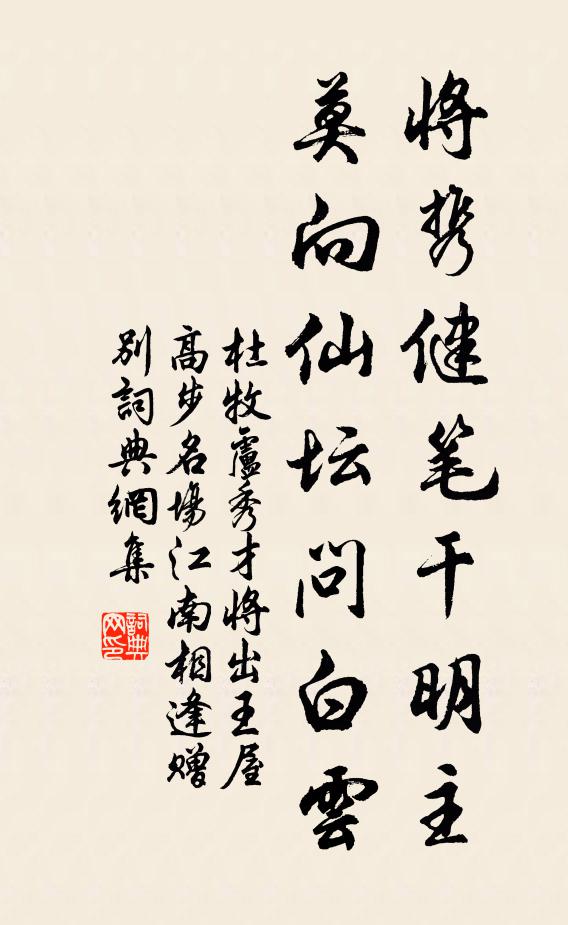 将携健笔干明主
莫向仙坛问白雲
杜牧盧秀才将出王屋
高步名場江南相逢赠
别詞典網集
詞典网印